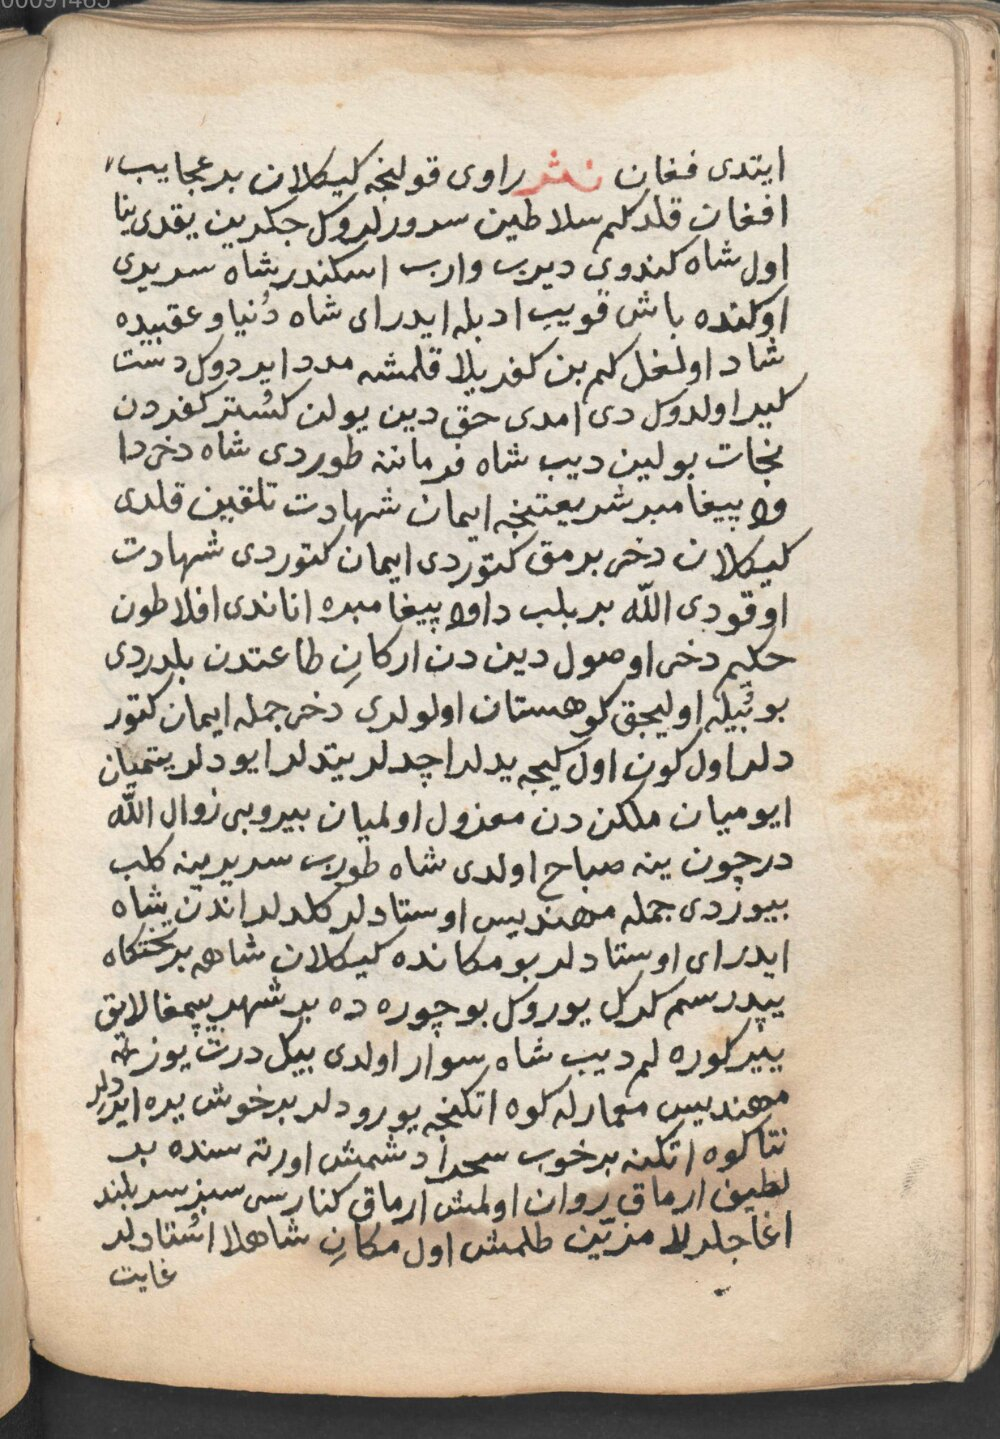 00091465
ایتدی فغان نثر راوی قولنجه کیکلان بر عجایب
افغان قلدکم سلاطین سرورلر وکل جکرین یقدی ینا
اول شاه کندوی دیرب وارب اسکندر شاه سریری
اوکنده باش قویب ادبله ایدر ای شاه دُنیا و عقبیده
شاد اولغل کم بن کفر یلا قلمشه مدد ایردوکل دست
کیر اولدوکل دی امدی حق دین یولن کُستر کفردن
نجات بولین دیب شاه فرماننه طوردی شاه دخی دا
ود پیغامبر شریعتنجه ایمان شهادت تلقین قلدی
کیکلان دخی برمق کتوردی ایمان کتوردی شهادت
اوقودی الله بر بلب داود پیغامبره اناندی افلاطون
حکیم دخی اوصول دین دن ارکانِ طاعتدن بلدردی
بو ئبیله اولیجق کوهستان اولولری دخی جمله ایمان کتور
دلر اول کون اول کیجه یدلر اچدلر یتدلر ایودلر یتمیان
ایومیان ملکن دن معزول اولمیان بیر وبی زوال الله
در چون ینه صباح اولدی شاه طورب سریرینه کلب
بیوردی جمله مهندیس اوستادلر کلدلر اندن شاه
ایدر ای اوستادلر بو مکانده کیکلان شاهه بر تختکاه
یپدرسم کرک یوروکل بو چوره ده بر شهر یپمغا لایق
ییر کوره لم دیب شاه سوار اولدی بیکل درت یوز
مهندیس معمارله کوه اتکنجه یورودلر بر خوش یره ایردلر
نتا کوه اتکنه بر خوب سحرا دشمش اورته سنده بر
لطیف ارماق روان اولمش ارماق کنارسی سبز سر بلند
اغاجلر لا مزیّن طلمش اول مکانِ شاهلا اُستادلر
غایت